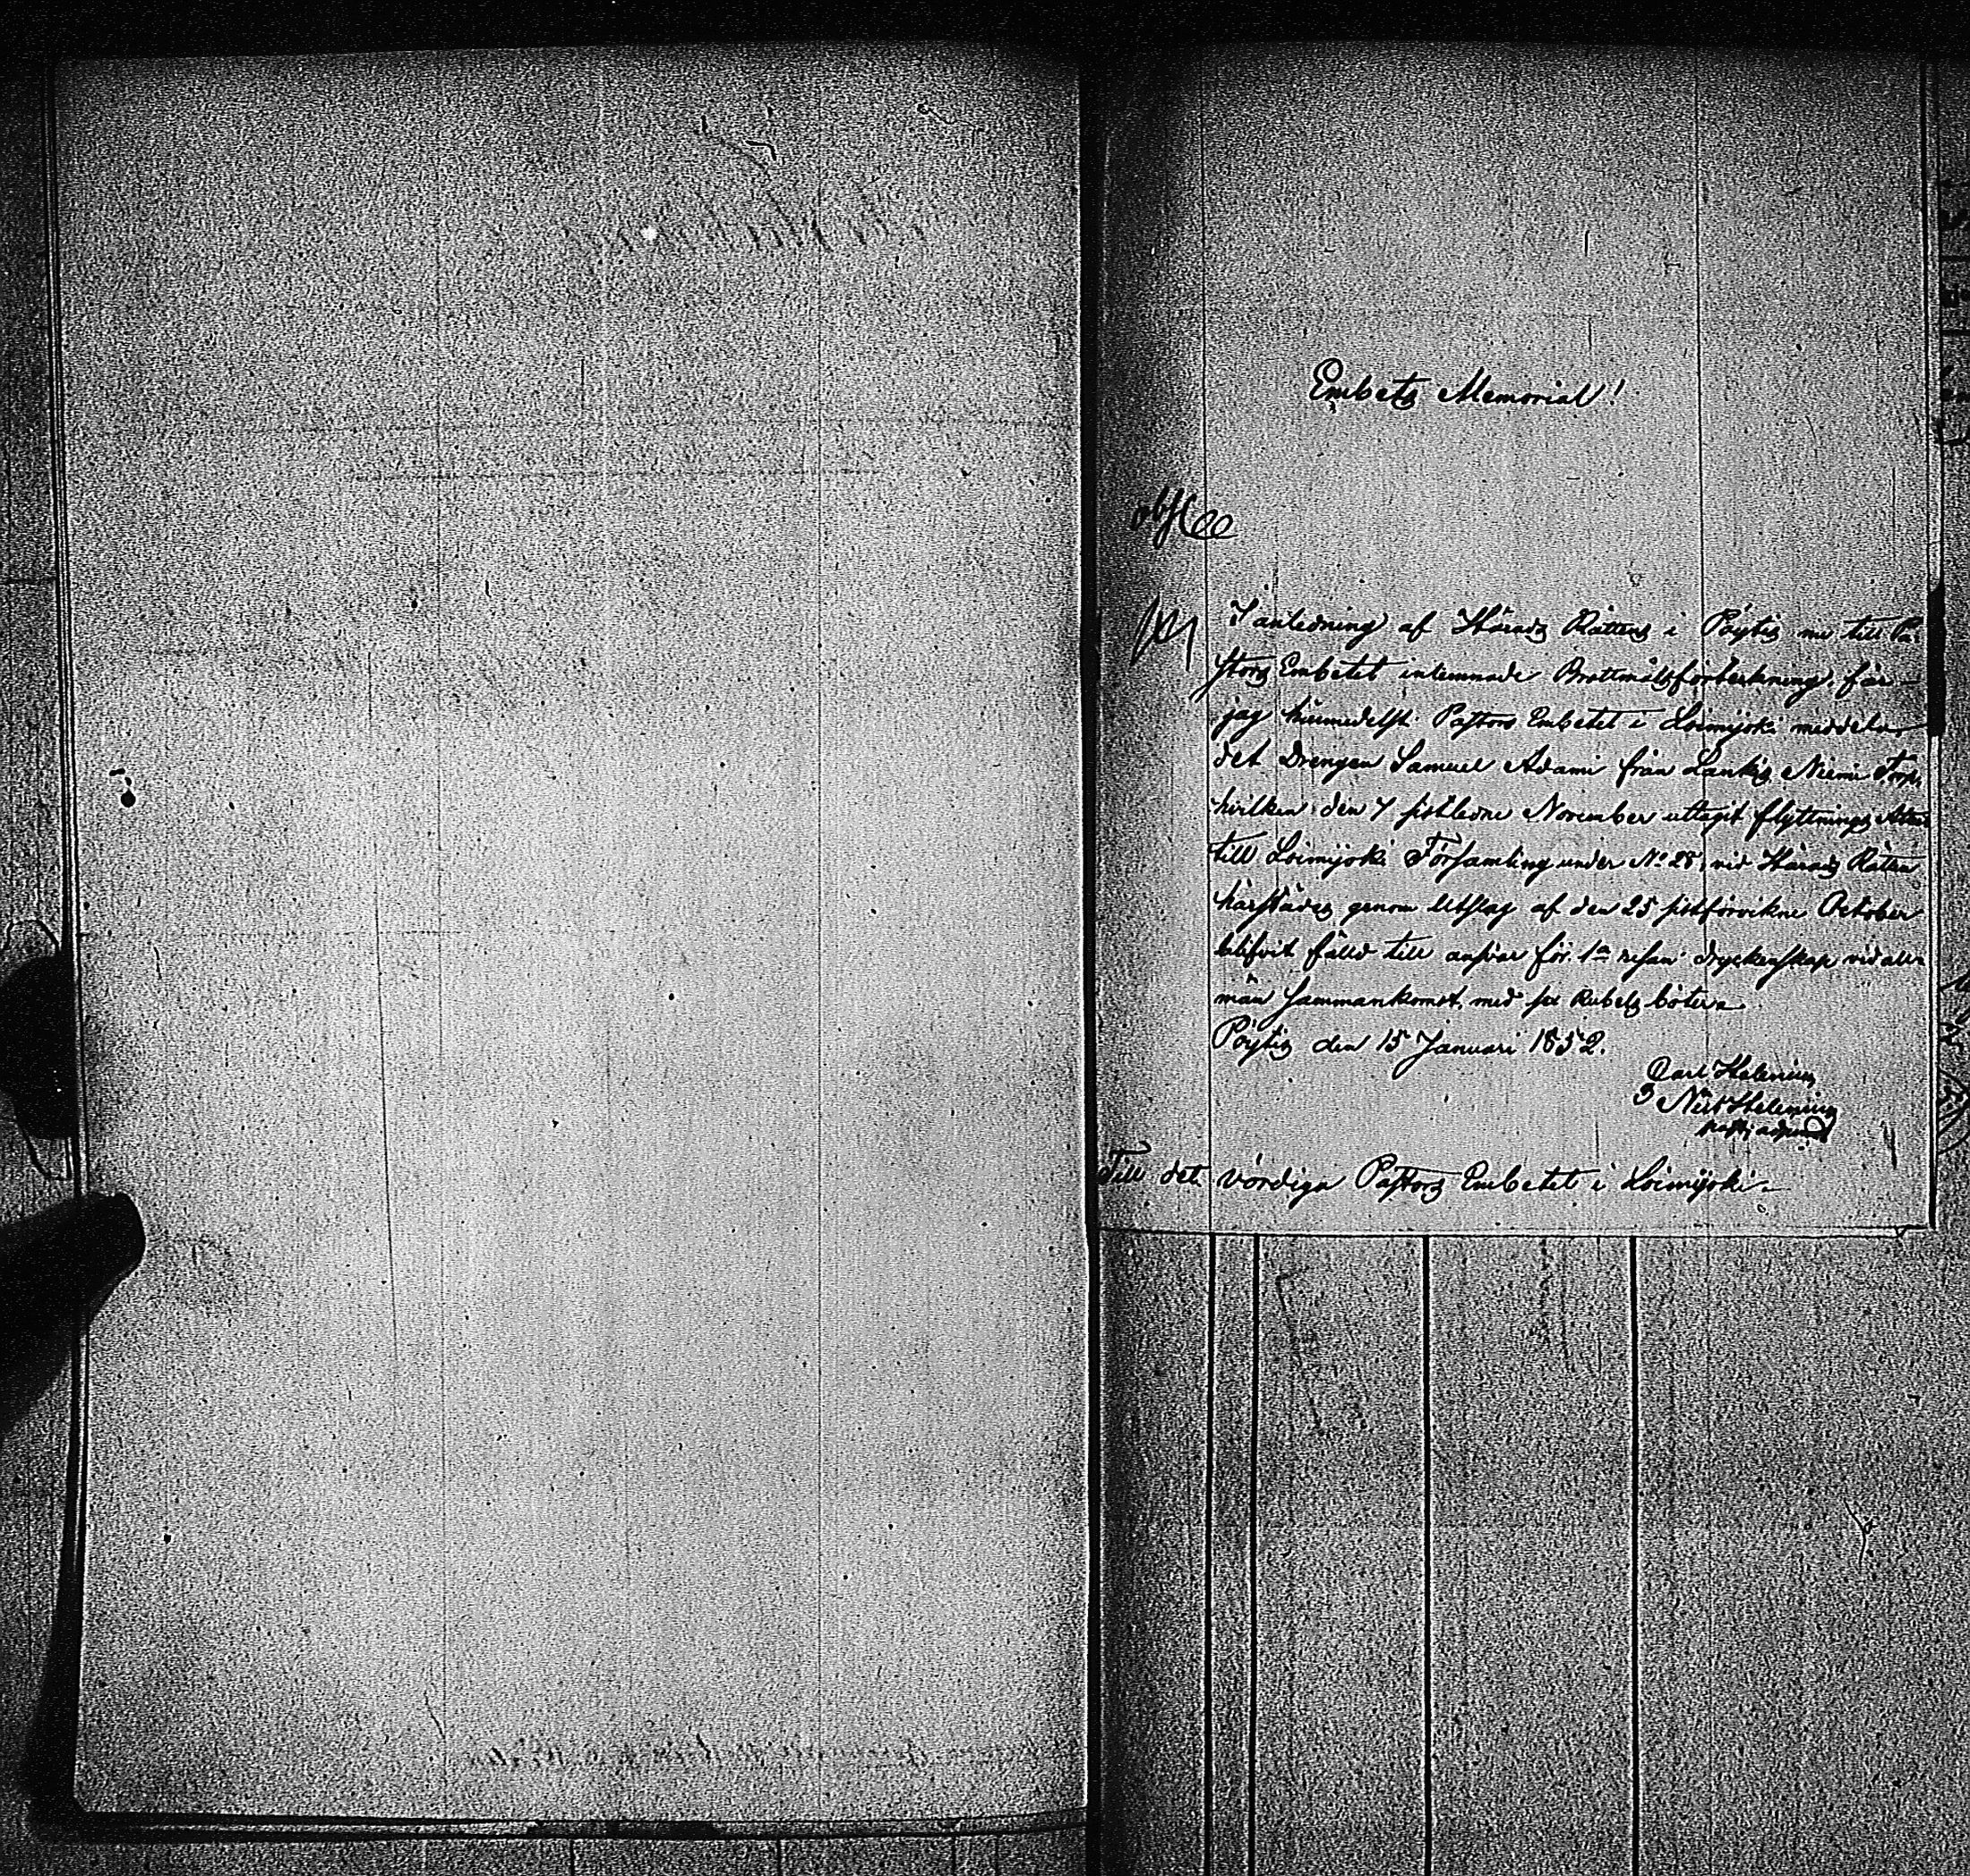 Embets Memorial!
I anledning af Härads Rättens i Pöytis nu till Pa-
stors Embetet inlemnade Brottmålsförtekning, får
jag härmedelst Pastors Embetet i Loimijoki meddela,
det Drengen Samuel Adami från Lankis Niemi Torp,
hvilken den 7 sistledne November uttagit flyttnings Attest
till Loimijoki Församling under No 28, vid Härads Rätten
härstädes genom utslag af den 25 sistförvikne October
blifvit fälld till ansvar för 1a resan dryckenskap vid all-
män sammankomst, med sex Rubels böter.
Pöytis den 15 Januari 1852.
Carl Helenius
Helenius
Till det vördiga Pastors Embetet i Loimijoki.